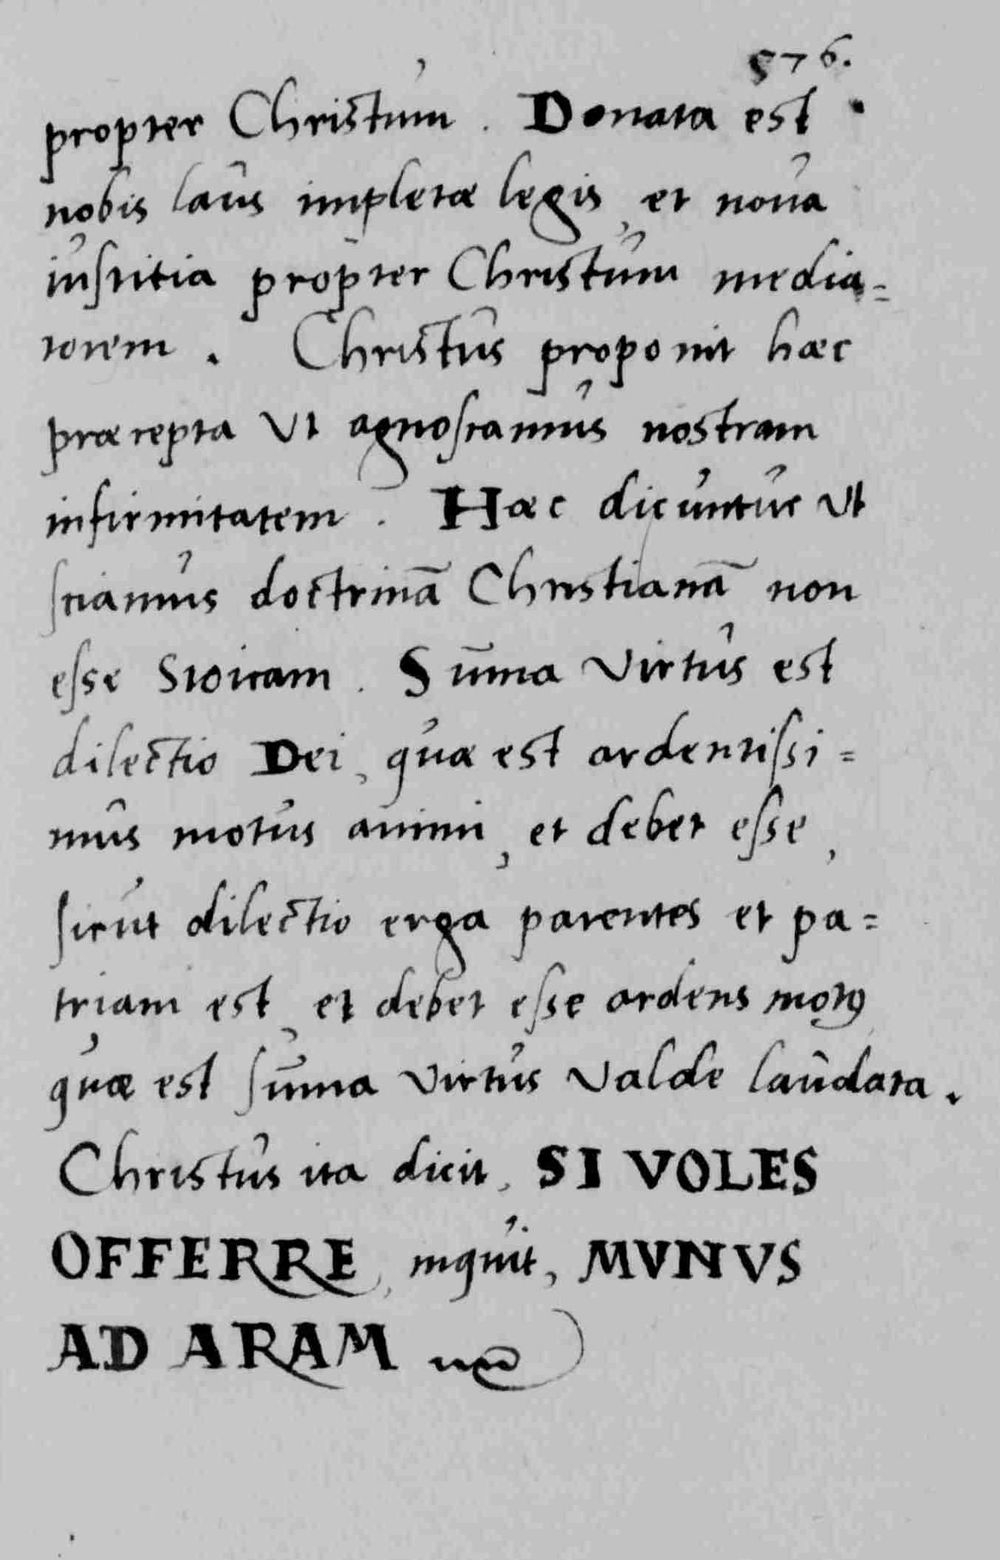 576.
propter Christum. Donata est
nobis laus impletæ legis, et noua
iuſtitia propter Christum media=
torem. Christus proponit hæc
præcepta Vt agnoſcamus nostram
infirmitatem. Hæc dicuntur Vt
ſciamus doctrinā Christianā non
eſse Stoicam. Sūma Virtus est
dilectio Dei, quæ est ardentiſsi=
mus motus animi, et debet eſse,
ſicut dilectio erga parentes et pa=
triam est, et debet eſse ardens motꝰ
quæ est ſūma Virtus Valde laudata.
Christus ita dicit, SI VOLES
OFFERRE, inquit, MVNVS
AD ARAM